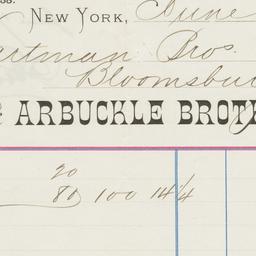 NEW YORK, June
artman Bros.
Bloomsbu
ARBUCKLE BROTH
20
80 100 14 1/4